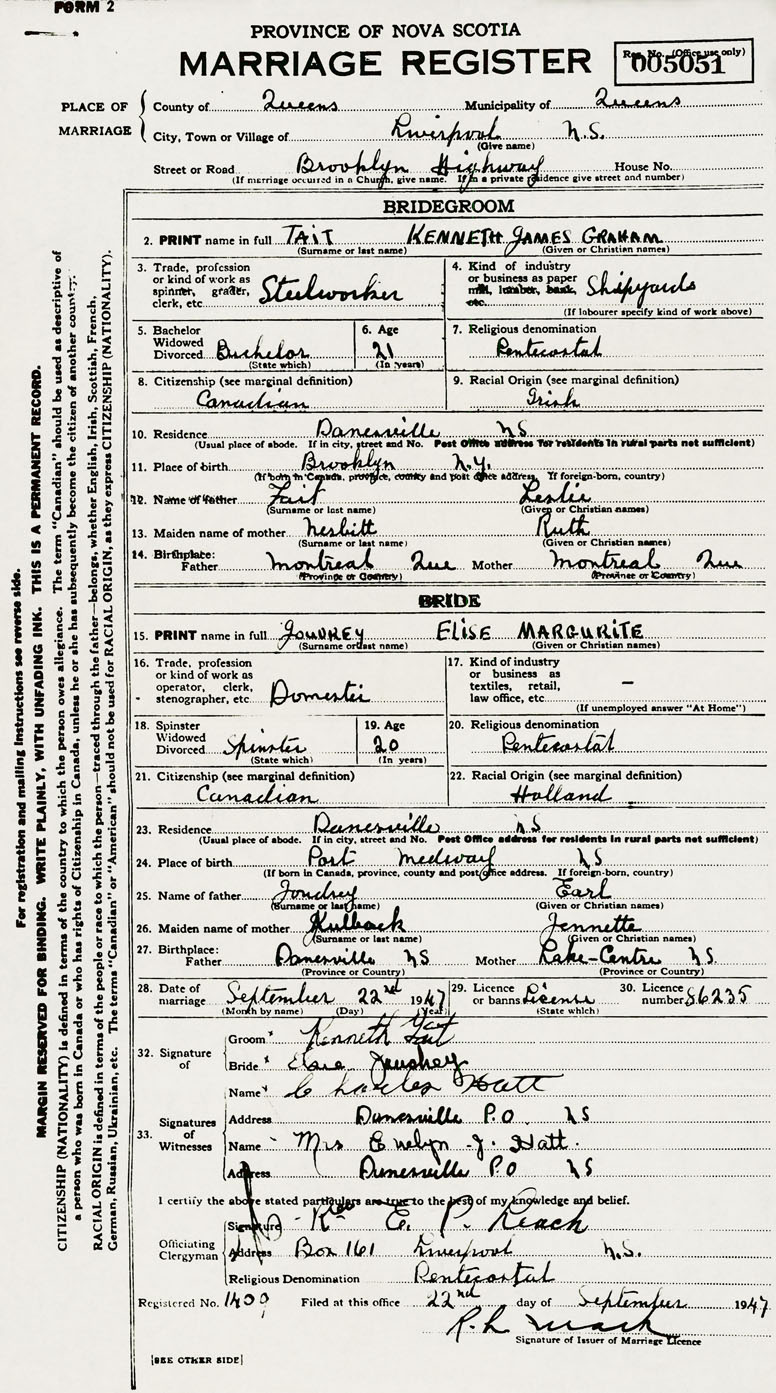 FORM 2
PROVINCE OF NOVA SCOTIA
MARRIAGE REGISTER
Reg. No. (Office use only)
005051
PLACE OF MARRIAGE
County of Queens Municipality of Queens
City, Town or Village of Liverpool N.S.
(Give name)
Street or Road Brooklyn Highway House No.
(If marriage occurred in a Church, give name. If in a private residence give street and number)
BRIDEGROOM
2. PRINT name in full TAIT KENNETH JAMES GRAHAM
(Surname or last name) (Given or Christian names)
3. Trade, profession or kind of work as spinner, grader, clerk, etc. Steelworker
4. Kind of industry or business as paper mill, lumber, bank, etc. Shipyards
(If labourer specify kind of work above)
5. Bachelor Widowed Divorced Bachelor
(State which)
6. Age 21
(In years)
7. Religious denomination
Pentecostal
8. Citizenship (see marginal definition)
Canadian
9. Racial Origin (see marginal definition)
Irish
10. Residence Danesville NS
(Usual place of abode. If in city, street and No. Post Office address for residents in rural parts not sufficient)
11. Place of birth Brooklyn N.Y.
(If born in Canada, province, county and post office address. If foreign-born, country)
12. Name of father Tait Leslie
(Surname or last name) (Given or Christian names)
13. Maiden name of mother Nesbitt Ruth
(Surname or last name) (Given or Christian names)
14. Birthplace:
Father Montreal Que Mother Montreal Que
(Province or Country) (Province or Country)
BRIDE
15. PRINT name in full JOUDREY ELISE MARGURITE
(Surname or last name) (Given or Christian names)
16. Trade, profession or kind of work as operator, clerk, stenographer, etc. Domestic
17. Kind of industry or business as textiles, retail, law office, etc. –
(If unemployed answer "At Home")
18. Spinster Widowed Divorced Spinster
(State which)
19. Age 20
(In years)
20. Religious denomination
Pentecostal
21. Citizenship (see marginal definition)
Canadian
22. Racial Origin (see marginal definition)
Holland
23. Residence Danesville NS
(Usual place of abode. If in city, street and No. Post Office address for residents in rural parts not sufficient)
24. Place of birth Port Medway NS
(If born in Canada, province, county and post office address. If foreign-born, country)
25. Name of father Joudrey Earl
(Surname or last name) (Given or Christian names)
26. Maiden name of mother Kulback Jennette
(Surname or last name) (Given or Christian names)
27. Birthplace:
Father Danesville NS Mother Lake-Centre NS.
(Province or Country) (Province or Country)
28. Date of marriage September 22nd 1947
(Month by name) (Day) (Year)
29. Licence or banns License
(State which)
30. Licence number 86235
32. Signature of
Groom x Kenneth Tait
Bride x
33. Signatures of Witnesses
Name x Charles Hatt
Address Danesville P.O NS
Name Mrs Evelyn J. Hatt.
Address Danesville P.O NS
I certify the above stated particulars are true to the best of my knowledge and belief.
Officiating Clergyman
Signature Rev E. P. Leach
Address Box 161 Liverpool N.S.
Religious Denomination Pentecostal
Registered No. 1400 Filed at this office 22nd day of September 1947
Signature of Issuer of Marriage Licence
[SEE OTHER SIDE]
For registration and mailing instructions see reverse side.
MARGIN RESERVED FOR BINDING. WRITE PLAINLY, WITH UNFADING INK. THIS IS A PERMANENT RECORD.
CITIZENSHIP (NATIONALITY) is defined in terms of the country to which the person owes allegiance. The term "Canadian" should be used as descriptive of
a person who was born in Canada or who has rights of Citizenship in Canada, unless he or she has subsequently become the citizen of another country.
RACIAL ORIGIN is defined in terms of the people or race to which the person—traced through the father—belongs, whether English, Irish, Scottish, French,
German, Russian, Ukrainian, etc. The terms "Canadian" or "American" should not be used for RACIAL ORIGIN, as they express CITIZENSHIP (NATIONALITY).